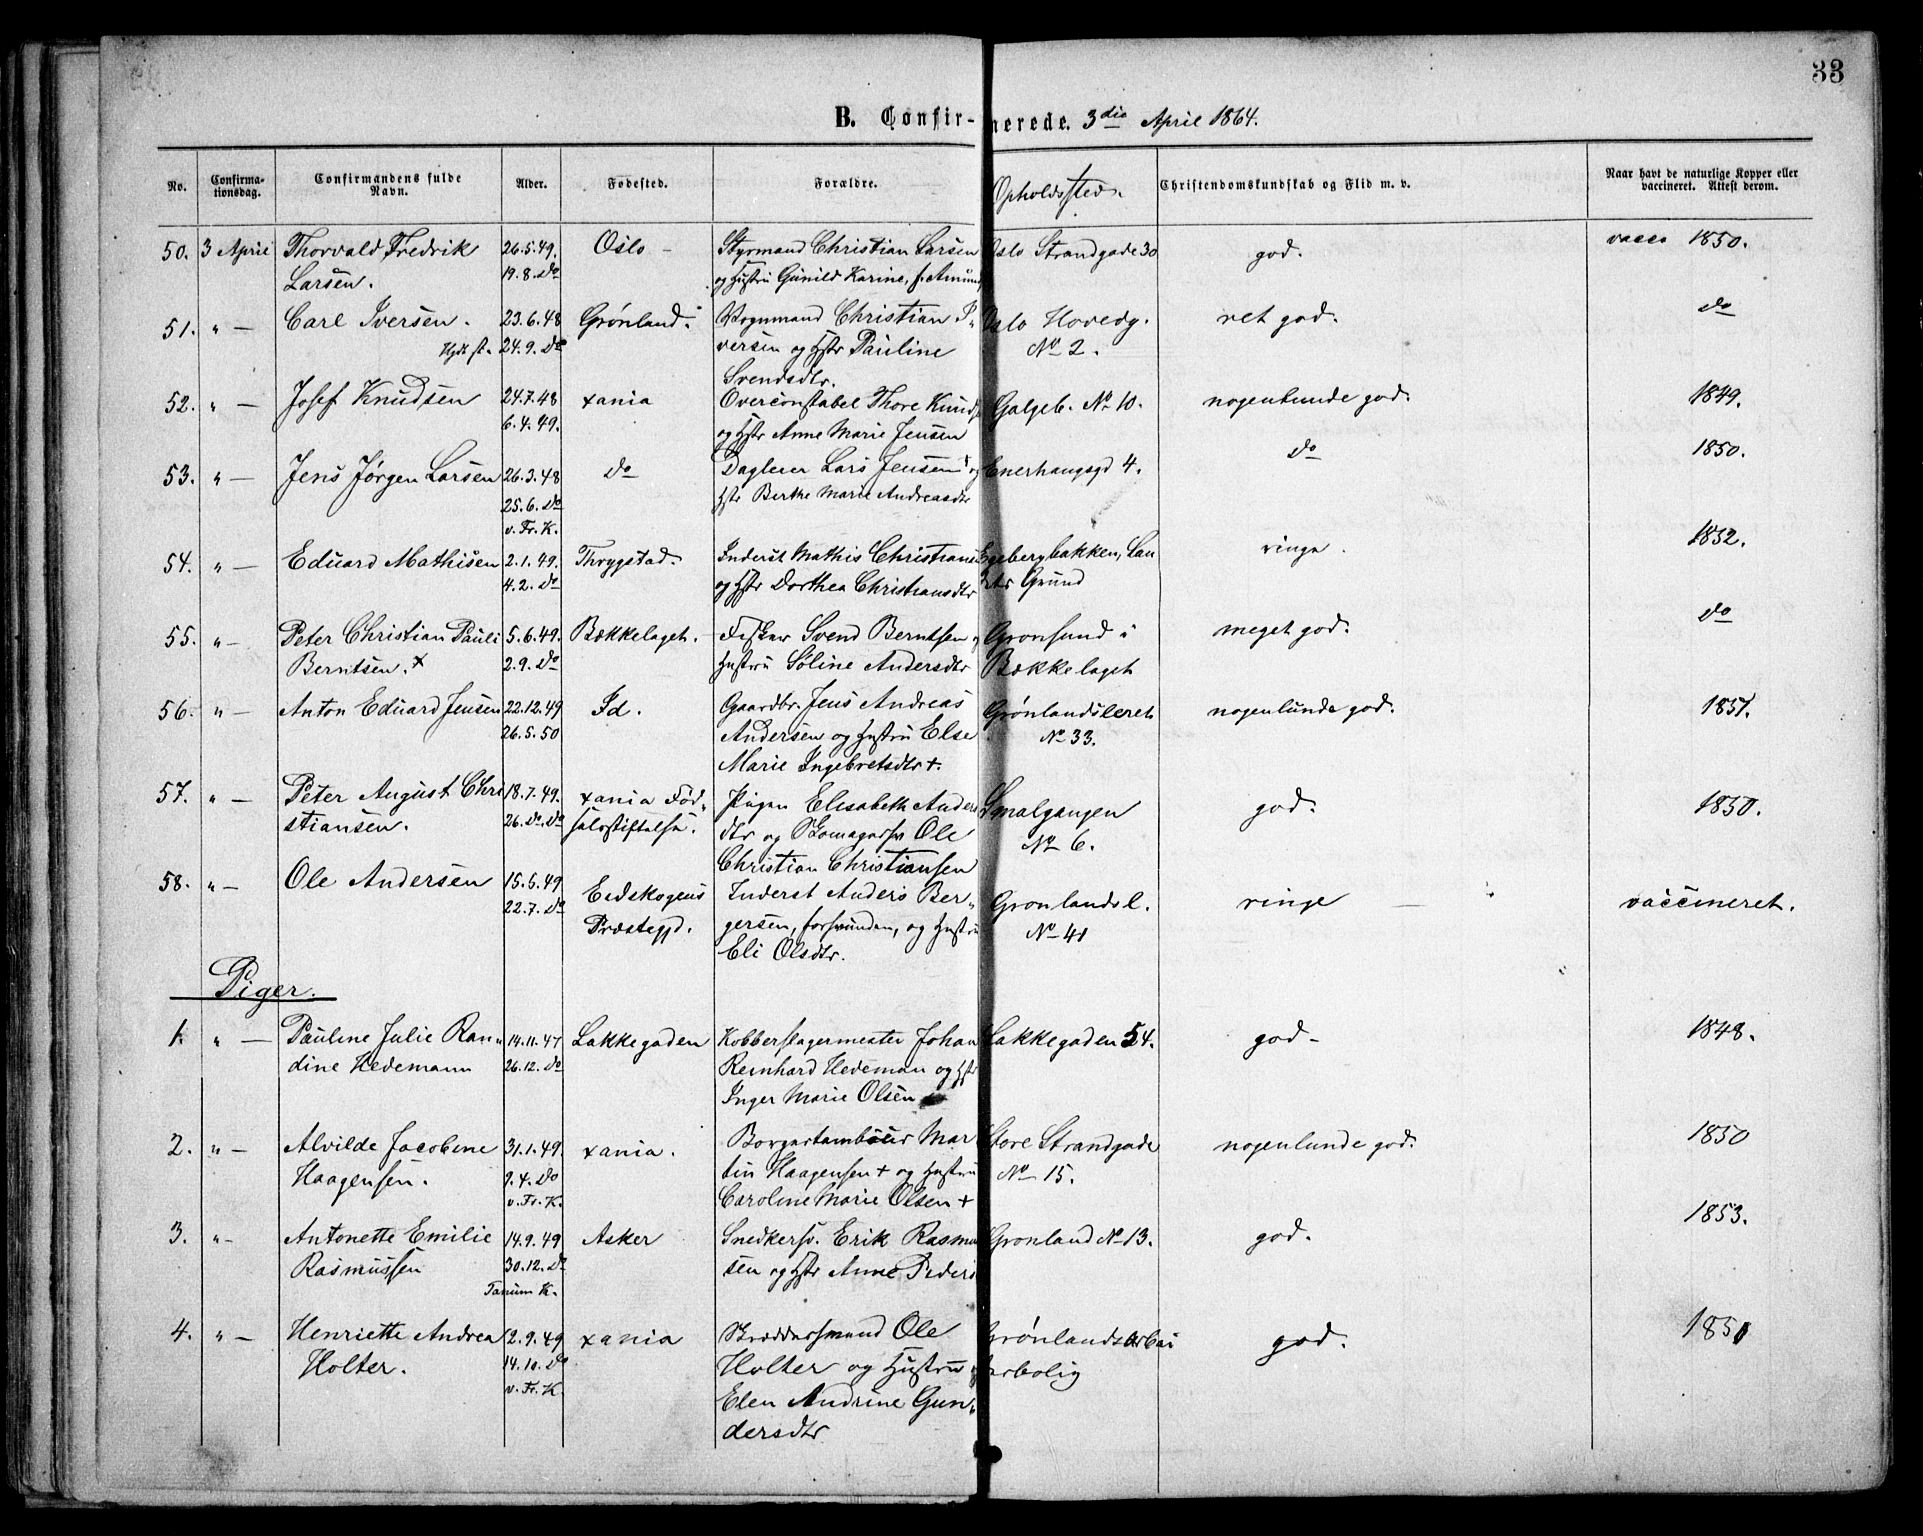 33
B. Confirmerede. 3die April 1864.
No. Confirmationsdag. Confirmandens fulde Navn. Alder. Fødested. Forældre. Opholdssted. Christendomskundskab og Flid m. v. Naar havt de naturlige Kopper eller vaccineret. Attest derom.
50. 3 April Thorvald Fredrik 26.5.49. Oslo – Styrmand Christian Larsen Oslo Strandgade 30 god. vacc 1850.
Larsen. 19.8. do og Hustru Gunild Karine, f. Amund
51. " — Carl Iversen. 23.6.48 Grønland. Vognmand Christian I- Oslo Hovedg. ret god. do
24.9. do versen og Hstr Pauline No 2.
Svendsdtr.
52. " — Josef Knudsen 24.7.48 xania Overconstabel Thore Knuds Galgeb. No 10. nogenlunde god. 1849.
6.4.49. og Hstr Anne Marie Jensen
53. " — Jens Jørgen Larsen 26.3.48 do Daglerer Lars Jensen + og Enerhaugsgd 4. do 1850.
25.6. do Hstr Berthe Marie Andreasdtr
v. Fr. K.
54. " — Eduard Mathisen 2.1.49. Thrygstad. Inderst Mathis Christians Egebergbakken, Lan ringe. 1852.
4.2. do og Hstr Dorthea Christiansdtr Grund
55. " — Peter Christian Pauli 5.6.49. Bækkelaget. Fisker Svend Berntsen og Gronsund i meget god. do
Berntsen. + 2.9. do Hustru Soline Andersdtr Bækkelaget
56. " — Anton Eduard Jensen 22.12.49 Id. Gaardbr. Jens Andreas Grønlandsleret nogenlunde god. 1851.
26.5.50 Andersen og Hustru Else No 33.
Marie Ingebretsdtr +.
57. " — Peter August Chri 18.7.49. xania Fød- Pigen Elisabeth Anders Smalgangen god. 1850.
stiansen. 26. do. do selsstiftelse. dtr og Skomagersv Ole No 6.
Christian Christiansen
58. " — Ole Andersen 15.5.49 Eidskogens Inderst Anders Ber- Gronlandsl. ringe — vaccineret.
22.7. do Præstegjd. gersen, forsvunden, og Hustru No 41
Eli Olsdtr.
Piger.
1. " — Pauline Julie Ran- 14.11.47 Lakkegaden Kobberslagermester Johan Lakkegaden 54. god – 1848.
dine Hedemann 26.12. do Reinhard Hedeman og Hstr
Inger Marie Olsen
2. " — Alvilde Jacobine 31.1.49. xania. Borgertambour Mar Store Strandgade nogenlunde god. 1850
Haagensen. 9.4. do tin Haagensen + og Hustru No 15.
v. Fr. K. Caroline Marie Olsen +
3. " — Antonette Emilie 14.9.49 Asker Snedkersv. Erik Rasmu Gronland No 13. god. 1853.
Rasmussen 30.12. do sen og Hstr Anne Peders
Tanum K.
4. " — Henriette Andrea 2.9.49 xania Bræddersmand Ole Grønlands Arbei god. 1851
Holter. 14.10. do Holter og Hustru derbolig
v. Fr. K. Elen Andrine Gun-
dersdtr